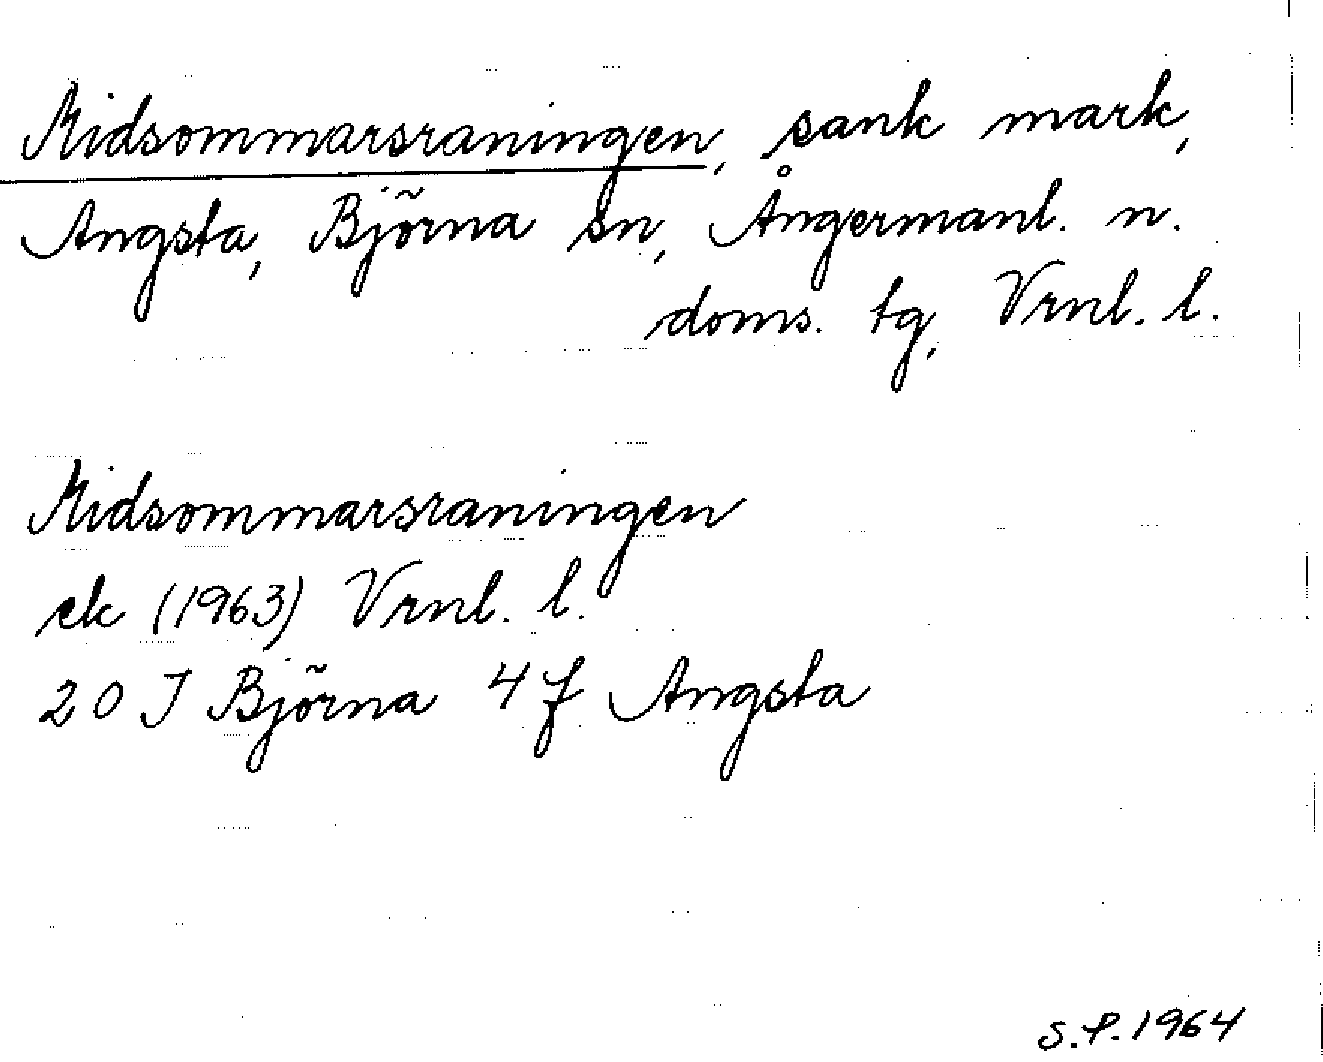 Midsommarsraningen, sank mark,
Angsta, Björna sn, Ångermanl. n.
doms. tg, Vrnl. l.
Midsommarsraningen
ek (1963) Vrnl. l.
20 J Björna 4 f Angsta
S.P. 1964